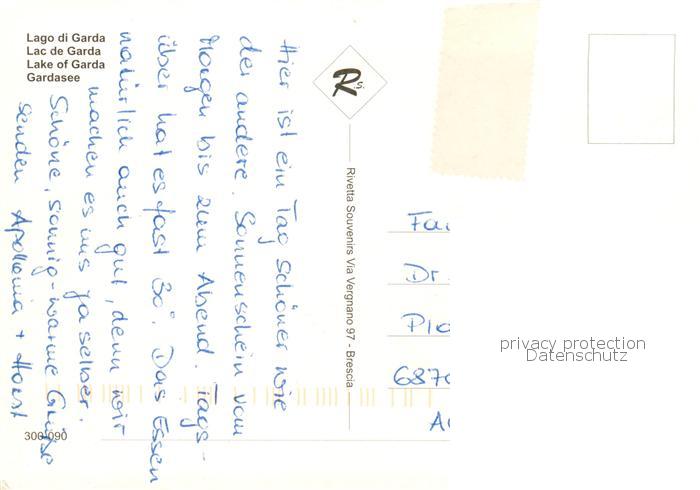 Lago di Garda
Lac de Garda
Lake of Garda
Gardasee
Hier ist ein Tag schöner wie
der andere. Sonnenschein vom
Morgen bis zum Abend. Tags-
über hat es fast 30°. Das Essen
natürlich auch gut, denn wir
machen es uns ja selber.
Schöne, sonnig-warme Grüße
senden Apollonia + Horst
R S.
Rivetta Souvenirs Via Vergnano 97 - Brescia
Fa
Dr
Pla
687
A
privacy protection
Datenschutz
300/090